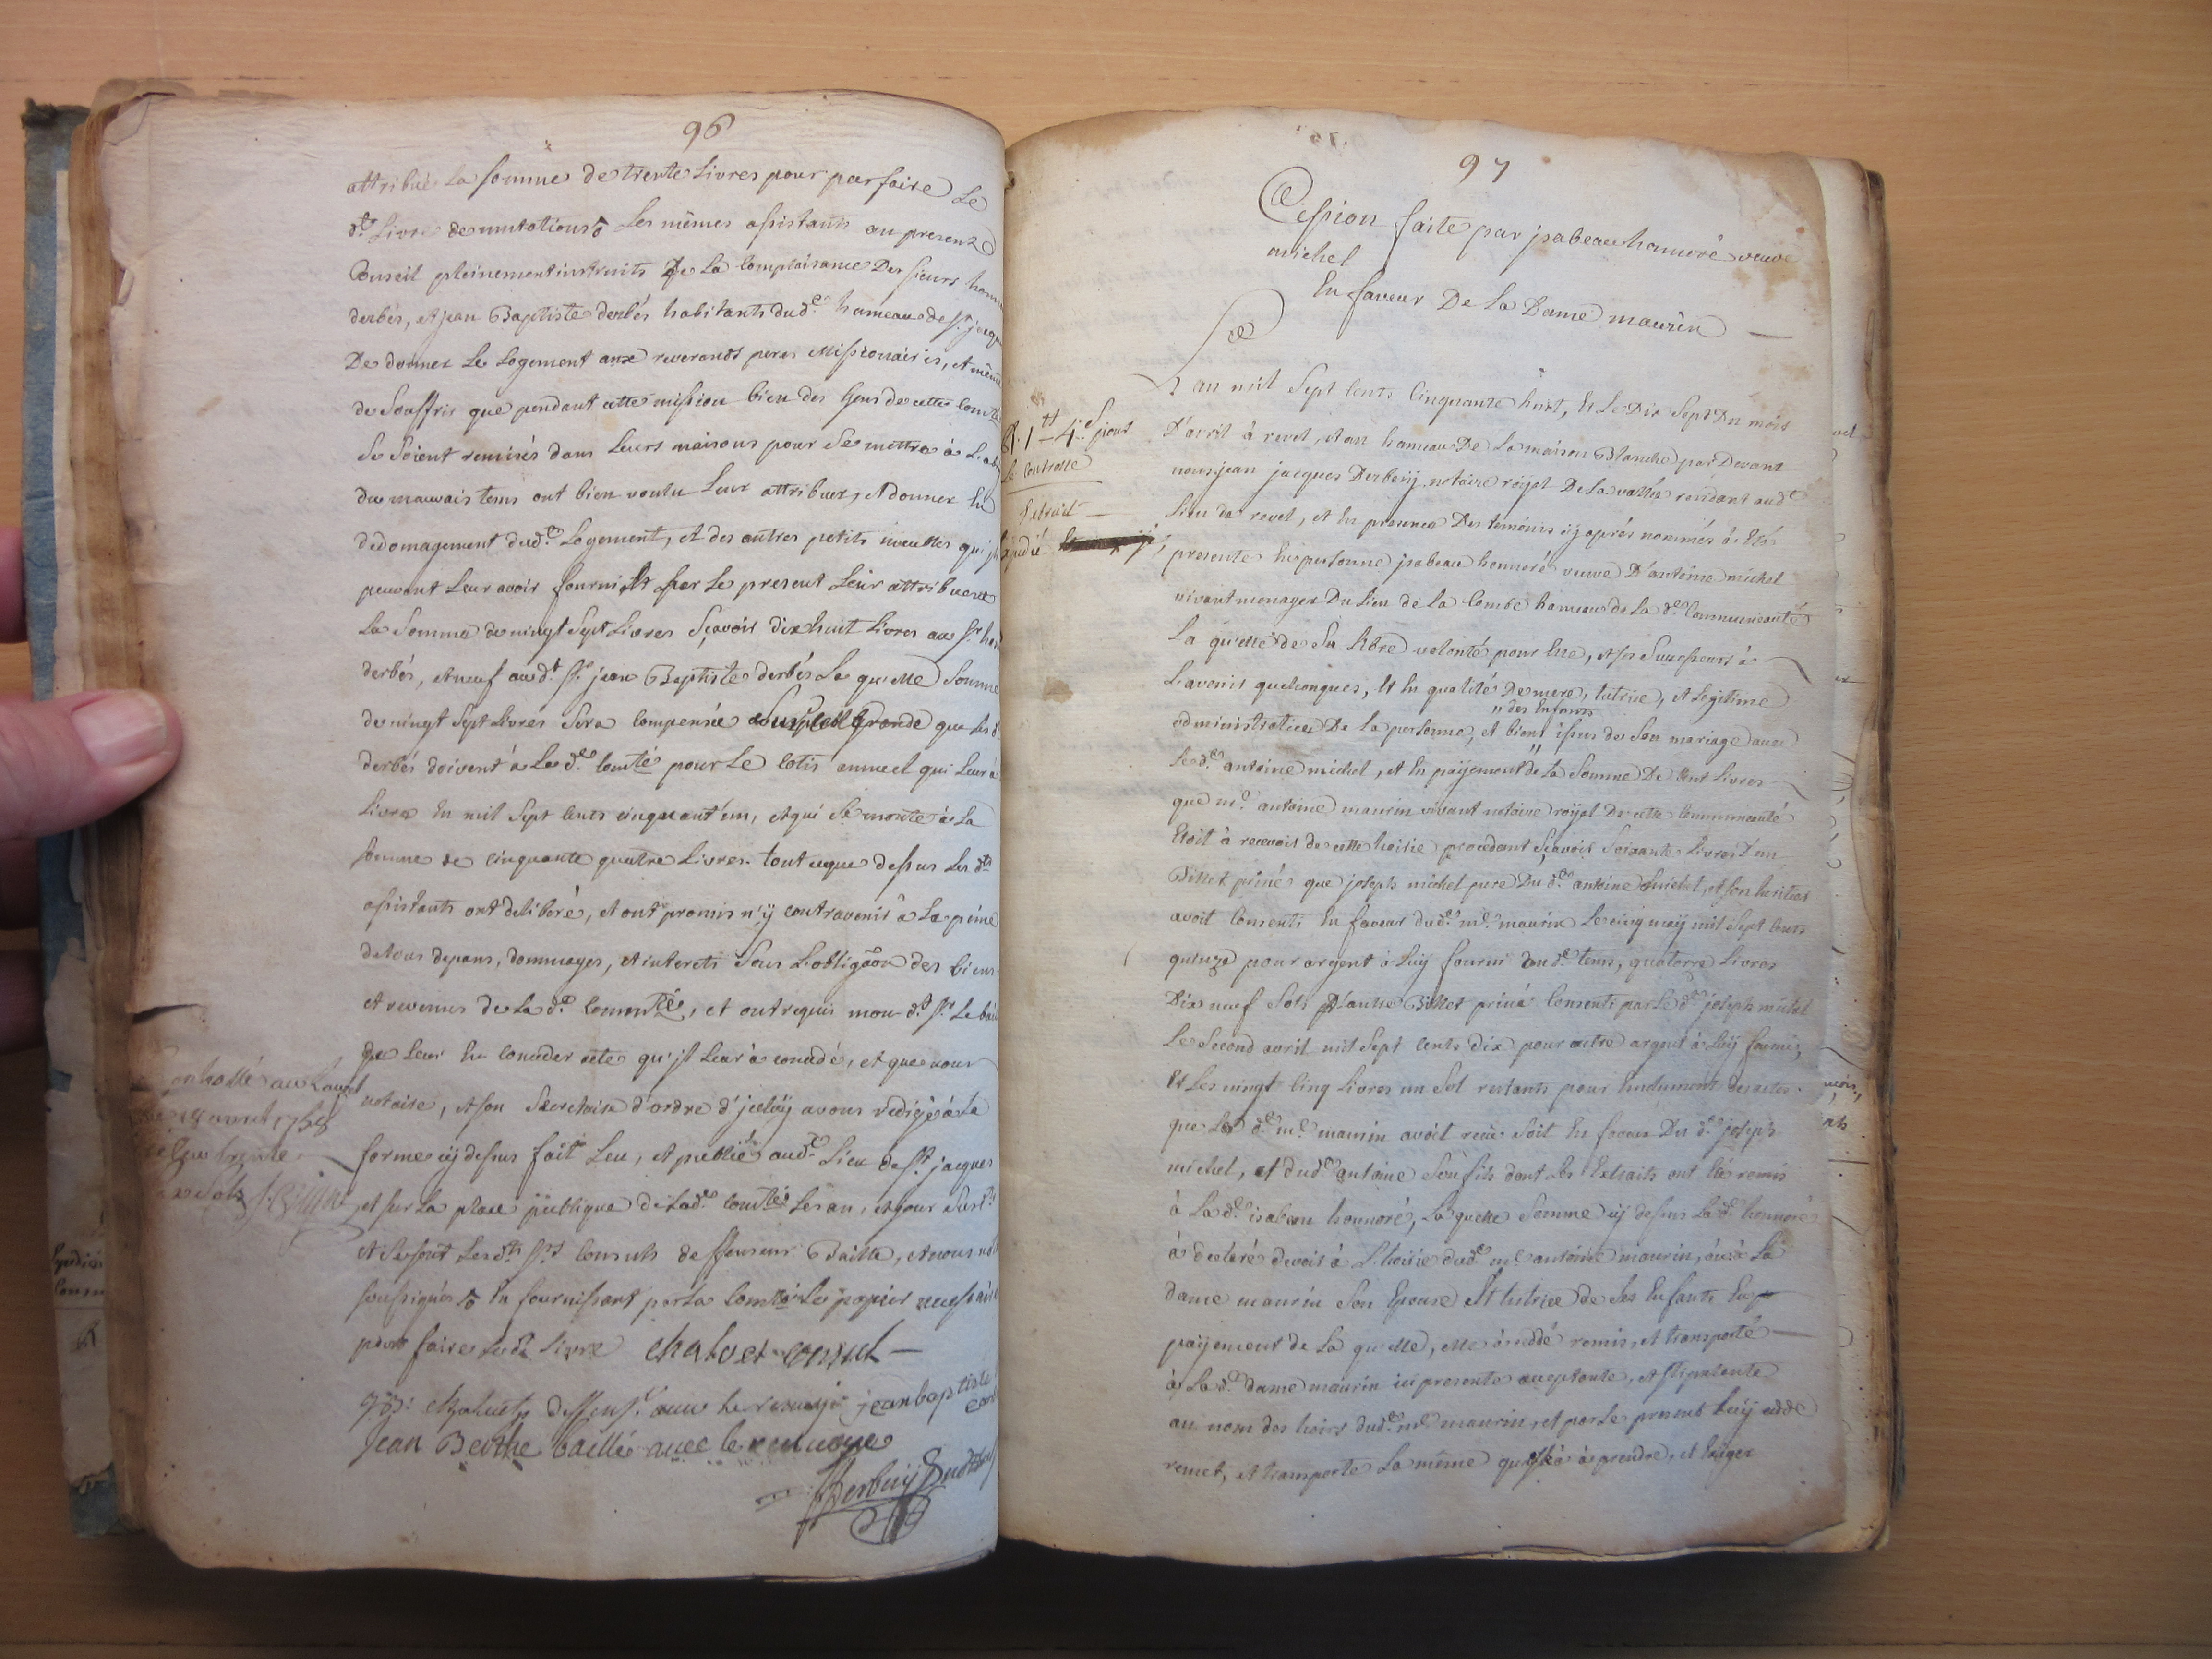 96
attribué La somme de trente Livres pour parfaire Le
d.t Livre de mutations Les mêmes assistants au present
Conseil pleinement instruits De La Complaisance Des sieurs
derbés, et jean Baptiste derbés habitants dud.t hameau de s.t jacques
De donner Le Logement aux reverends peres Missionaires, et même
de souffrir que pendant cette mission bien des gens de cette com.té
se soient remisés dans Leurs maisons pour se mettre à
du mauvais tems ont bien voulu Leur attribuer, et donner En
dedomagement dud.t Logement, et des autres petits meubles
peuvent Leur avoir fourni et par Le present Leur attribuent
La somme de vingt sept Livres sçavoir dix huit Livres au s.r
derbés, et neuf aud.t s.r jean Baptiste derbés La quelle somme
de vingt sept Livres sera compensée que Les d.
derbés doivent à La d.te com.té pour Le cotis annuel qui Leur à
Livré En mil sept cents cinquant'un, et qui se monte à La
somme de cinquante quatre Livres. tout ce que dessus Les d.ts
assistants ont deliberé, et ont promis n'ÿ contravenir à La peine
de tous depans, dommages, et interets sous L'obligãon des biens
et revenus de La d.te comm.té, et ont requis mon d.t s.r Le
De Leur En conceder acte qu'jl Leur à concedé, et que nous
notaire, et son secretaire d'ordre d'jceluÿ avons redigé à La
forme cÿ dessus fait Leu, et publié aud.t Lieu de s.t jacques
et sur La place publique de Lad.te com.té Les an, et jour susd.ts
et se sont Les d.ts s.rs consuls deffenseur Baille, et nous
soussignés En fournissant par La com.té Le papier necessaire
pour faire Led.t Livre chalvet consul
deffens.r avec le jean baptiste
jean Berthe baille avec le
Derbeÿ
au Lauzet
avril 1758
trente
sols
97
Cession faite par jsabeau honnoré veuve
michel
En faveur De La Dame maurin
L'an mil sept cents cinquante huit, Et Le Dix sept Du mois
D'avril à revel, et au hameau De La maison Blanche par Devant
nous jean jacques Derbeÿ, notaire roÿal De La vallée residant aud.t
Lieu de revel, et En presence Des temoins cÿ après nommés à Eté
presente En personne jsabeau honnoré veuve D'antoine michel
vivant menager Du Lieu de La Combe hameau de La d.te Communeauté
La quelle de sa Libre volonté pour Elle, et ses successeurs à
L'avenir quelconques, Et En qualité De mere, tutrice, et Legitime
" des Enfants
administratrice De La personne, et biens " issus de son mariage avec
Le d.t antoine michel, et En paÿement de La somme De Cent Livres
que m.e antoine maurin vivant notaire roÿal De cette Communeauté
Etoit à recevoir de cette hoirie procedant sçavoir soixante Livres D'un
Billet privé que joseph michel pere Du d.t antoine michel, et son heritier
avoit Consenti En faveur dud.t m.e maurin Le cinq maÿ mil sept Cents
quinze pour argent à Luÿ fourni aud.t tems, quatorze Livres
Dix neuf sols D'autre Billet privé Consenti par Le d.t joseph michel
Le second avril mil sept cents dix pour autre argent à Luÿ fourni,
Et Les vingt Cinq Livres un sol restants pour des actes
que Le d.t m.e maurin avoit reçu soit En faveur Du d.t joseph
michel, et dud.t antoine son fils dont Les Extraits ont Eté remis
à La d.te isabeau honnoré, La quelle somme cÿ dessus La d.te honnoré
à declaré devoir à L'hoirie dud.t m.e antoine maurin, ou à La
dame maurin son Epouse Et tutrice de ses Enfants En
paÿement de La quelle, elle à cedé remis, et transporté
à La d.te dame maurin ici presente acceptante, et stipulante
au nom des hoirs dud.t m.e maurin, et par Le present Luÿ cede
remet, et transporte La même qu'elle à à prendre, et Exiger
pour
Le Controlle
Extrait